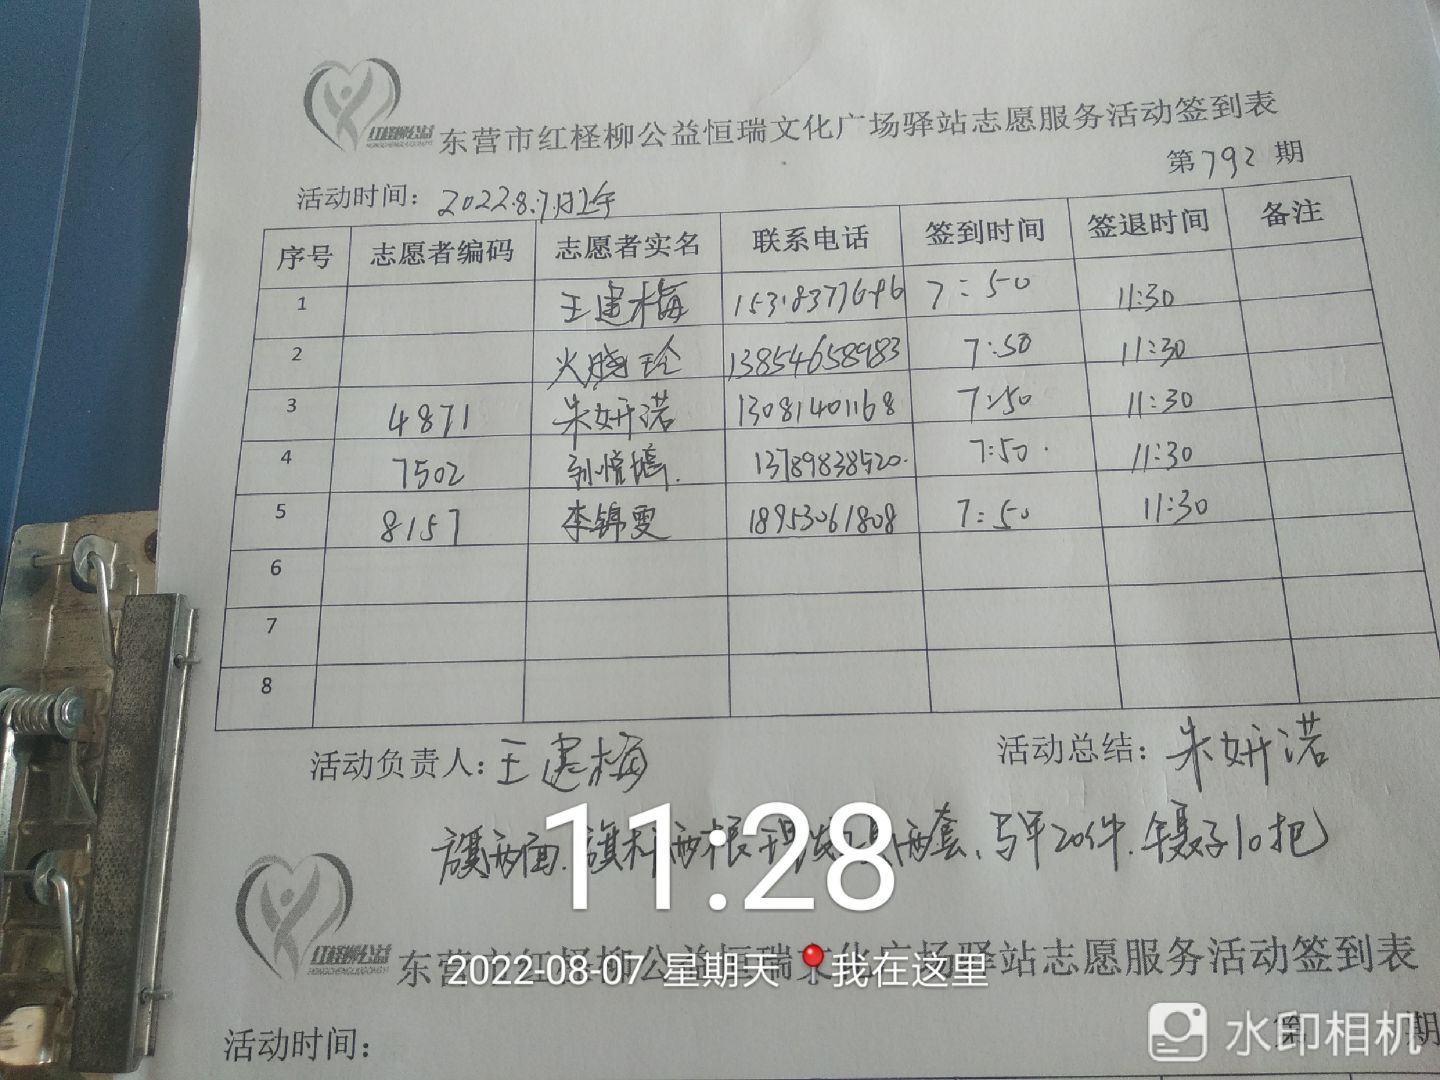 红柽柳公益
HONGCHENGLIUGONGYI
东营市红柽柳公益恒瑞文化广场驿站志愿服务活动签到表
第792期
活动时间：2022.8.7.日上午
序号 志愿者编码 志愿者实名 联系电话 签到时间 签退时间 备注
1 王建梅 15318377696 7:50 11:30
2 火晓玲 13854658983 7:50 11:30
3 4871 朱妍诺 13081401168 7:50 11:30
4 7502 孙 13789838520. 7:50. 11:30
5 8157 李锦雯 18953061808 7:50 11:30
6
7
8
活动负责人：王建梅 活动总结：朱妍诺
旗两面、旗杆两根 两套、马甲20件、镊子10把
11:28
红柽柳公益
HONGCHENGLIUGONGYI
东营市红柽柳公益恒瑞文化广场驿站志愿服务活动签到表
2022-08-07 星期天 我在这里
第 期
活动时间：
水印相机